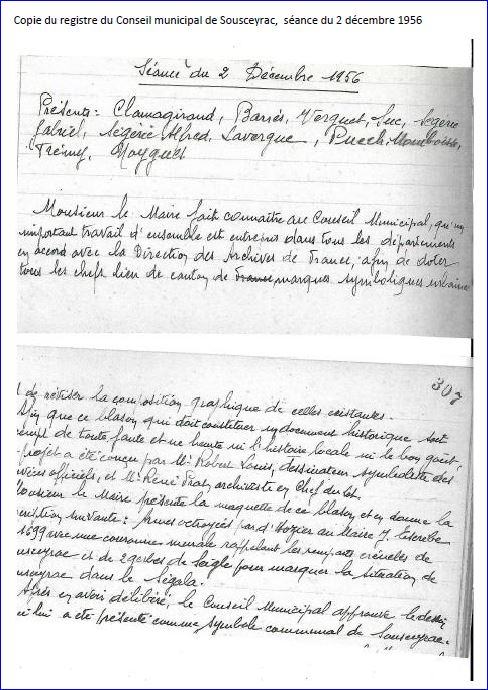 Copie du registre du Conseil municipal de Sousceyrac, séance du 2 décembre 1956
Séance du 2 Décembre 1956
Présents: Clamagirand, Barrès, Verguet, Suc, Ségérie
Gabriel, Ségérie Alfred, Lavergne, Puech, 
Trémy, Noyguet
Monsieur le Maire fait connaître au Conseil Municipal, qu'un
important travail d'ensemble est entrepris dans tous les départements
en accord avec la Direction des Archives de France, afin de doter
tous les chefs lieu de canton de France, marques symboliques urbaines
307
de réviser la composition graphique de celles existantes.
que ce blason qui doit constituer un document historique soit
de toute faute et ne heurte ni l'histoire locale ni le bon goût,
projet a été conçu par Mr Robert Louis, dessinateur symboliste des
officiels, et Mr René Prat, archiviste en Chef du Lot.
Monsieur le Maire présente la maquette de ce blason et en donne la
suivante: Armes octroyées par d'Hozier au Maire J. Lescribe
1699 avec une couronne murale rappelant les remparts crénelés de
usceyrac et de 2 gerbes de Seigle pour marquer la situation de
usceyrac dans le Ségala.
Après en avoir délibéré, le Conseil Municipal approuve le dessin
lui a été présenté comme symbole communal de Sousceyrac.